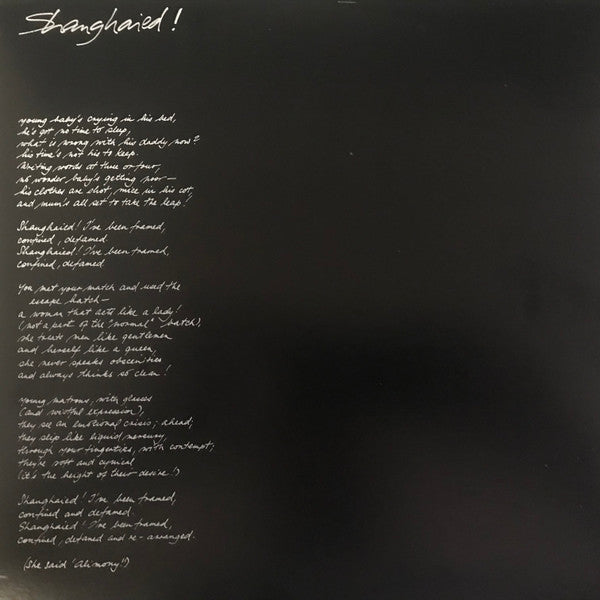 Shanghaied!
young baby's crying in his bed,
he's got no time to sleep,
what is wrong with his daddy now?
his time's not his to keep.
Writing words at three or four,
no wonder baby's getting poor—
his clothes are shot, mice in his cot,
and mum's all set to take the leap!
Shanghaied! I've been framed,
confined, defamed.
Shanghaied! I've been framed,
confined, defamed
You met your match and used the
escape hatch—
a woman that acts like a lady!
(not a part of the "normal" batch),
she treats men like gentlemen
and herself like a queen,
she never speaks obscenities
and always thinks so clean!
Young matrons, with glasses
(and wistful expression),
they see an emotional crisis; ahead;
they slip like liquid mercury,
through your fingertips, with contempt;
they're soft and cynical
(it's the height of their desire!)
Shanghaied! I've been framed,
confined and defamed.
Shanghaied! I've been framed,
confined, defamed and re-arranged.
(She said 'alimony'!)